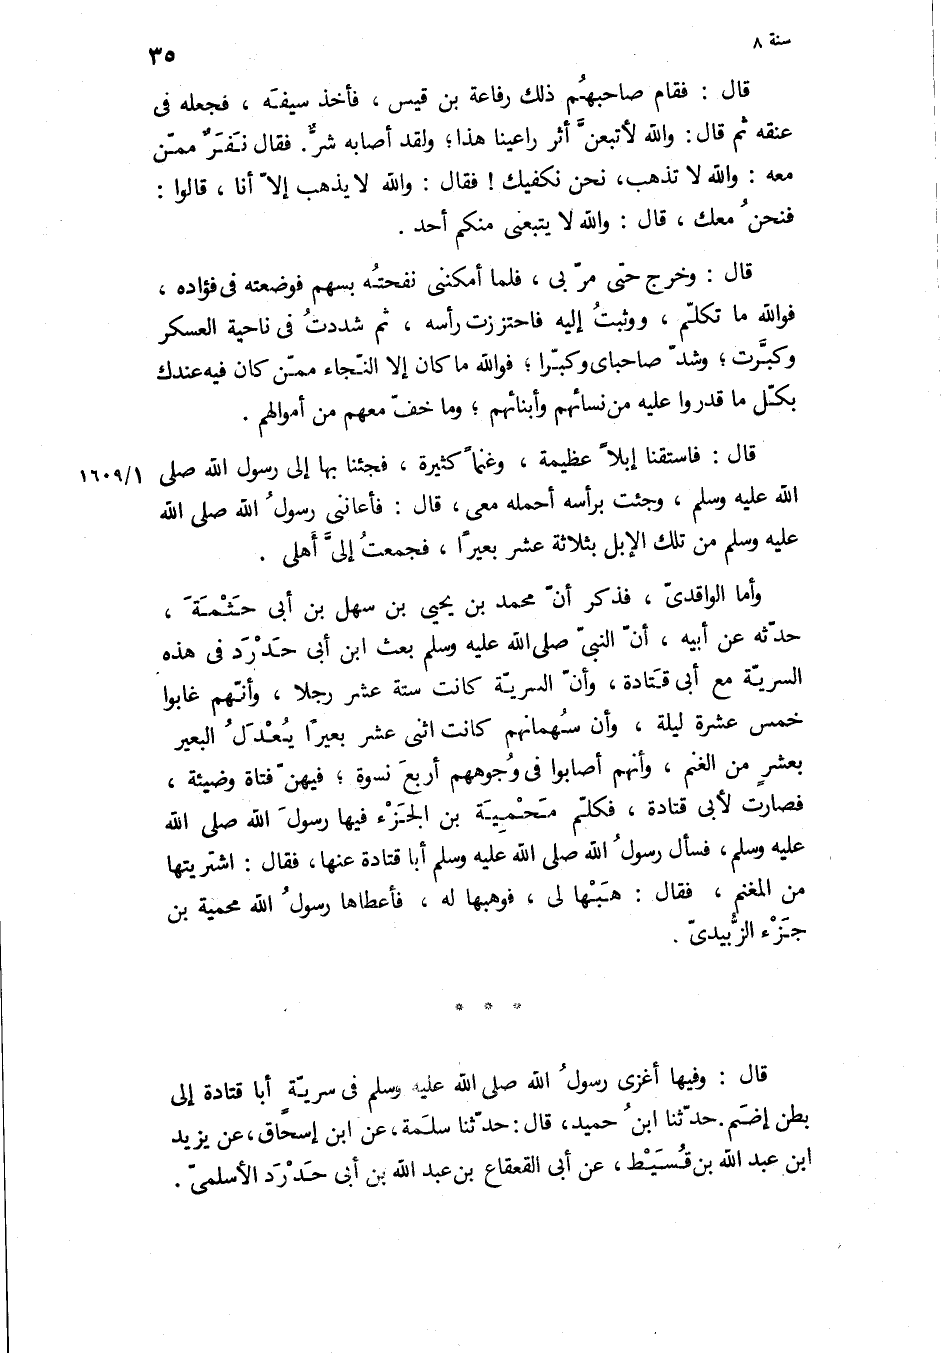 سنة ٨
٣٥
قال : فقام صاحبهُم ذلك رفاعة بن قيس ، فأخذ سيفَه ، فجعله فى
عنقه ثم قال: والله لأتبعنّ أثر راعينا هذا؛ ولقد أصابه شرٌّ. فقال نَفَرٌ ممّن
معه : والله لا تذهب، نحن نكفيك ! فقال : والله لا يذهب إلاّ أنا ، قالوا :
فنحنُ معك ، قال : والله لا يتبعنى منكم أحد .
قال : وخرج حتّى مرّ بى ، فلما أمكننى نفحتُه بسهم فوضعته فى فؤاده ،
فوالله ما تكلّم ، ووثبتُ إليه فاحتززت رأسه ، ثم شددتُ فى ناحية العسكر
وكبَّرت ؛ وشدّ صاحباى وكبّرا ؛ فوالله ما كان إلا النّجاء ممّن كان فيه عندك
بكلّ ما قدروا عليه من نسائهم وأبنائهم ؛ وما خفّ معهم من أموالهم .
قال : فاستقنا إبلاً عظيمة ، وغنماً كثيرة ، فجئنا بها إلى رسول الله صلى ١٦٠٩/١
الله عليه وسلم ، وجئت برأسه أحمله معى ، قال : فأعاننى رسولُ الله صلى الله
عليه وسلم من تلك الإبل بثلاثة عشر بعيرًا ، فجمعتُ إلىَّ أَهلى .
وأما الواقدىّ ، فذكر أنّ محمد بن يحيى بن سهل بن أبى حَثْمَةَ ،
حدّثه عن أبيه ، أنّ النبىّ صلى الله عليه وسلم بعث ابن أبى حَدْرَد فى هذه
السريّة مع أبى قَتادة ، وأنّ السريّة كانت ستة عشر رجلا ، وأنّهم غابوا
خمس عشرة ليلة ، وأن سُهمانهم كانت اثنى عشر بعيرًا يُعْدَلُ البعير
بعشرٍ من الغنم ، وأنهم أصابوا فى وُجوههم أربعَ نسوة ؛ فيهنّ فتاة وضيئة ،
فصارت لأبى قتادة ، فكلّم مَحْمِيَة بن الجَزْء فيها رسولَ الله صلى الله
عليه وسلم، فسأل رسولُ الله صلى الله عليه وسلم أبا قتادة عنها، فقال : اشتريتها
من المغنم ، فقال : هَبْها لى ، فوهبها له ، فأعطاها رسولُ الله محمية بن
جَزْء الزُّبيدىّ .
* * *
قال : وفيها أغزى رسولُ الله صلى الله عليه وسلم فى سريّةٍ أبا قتادة إلى
بطن إضَم. حدّثنا ابنُ حميد، قال: حدّثنا سلَمة، عن ابن إسحاق، عن يزيد
ابن عبد الله بن قُسَيْط ، عن أبى القعقاع بن عبد الله بن أبى حَدْرَد الأسلمىّ .